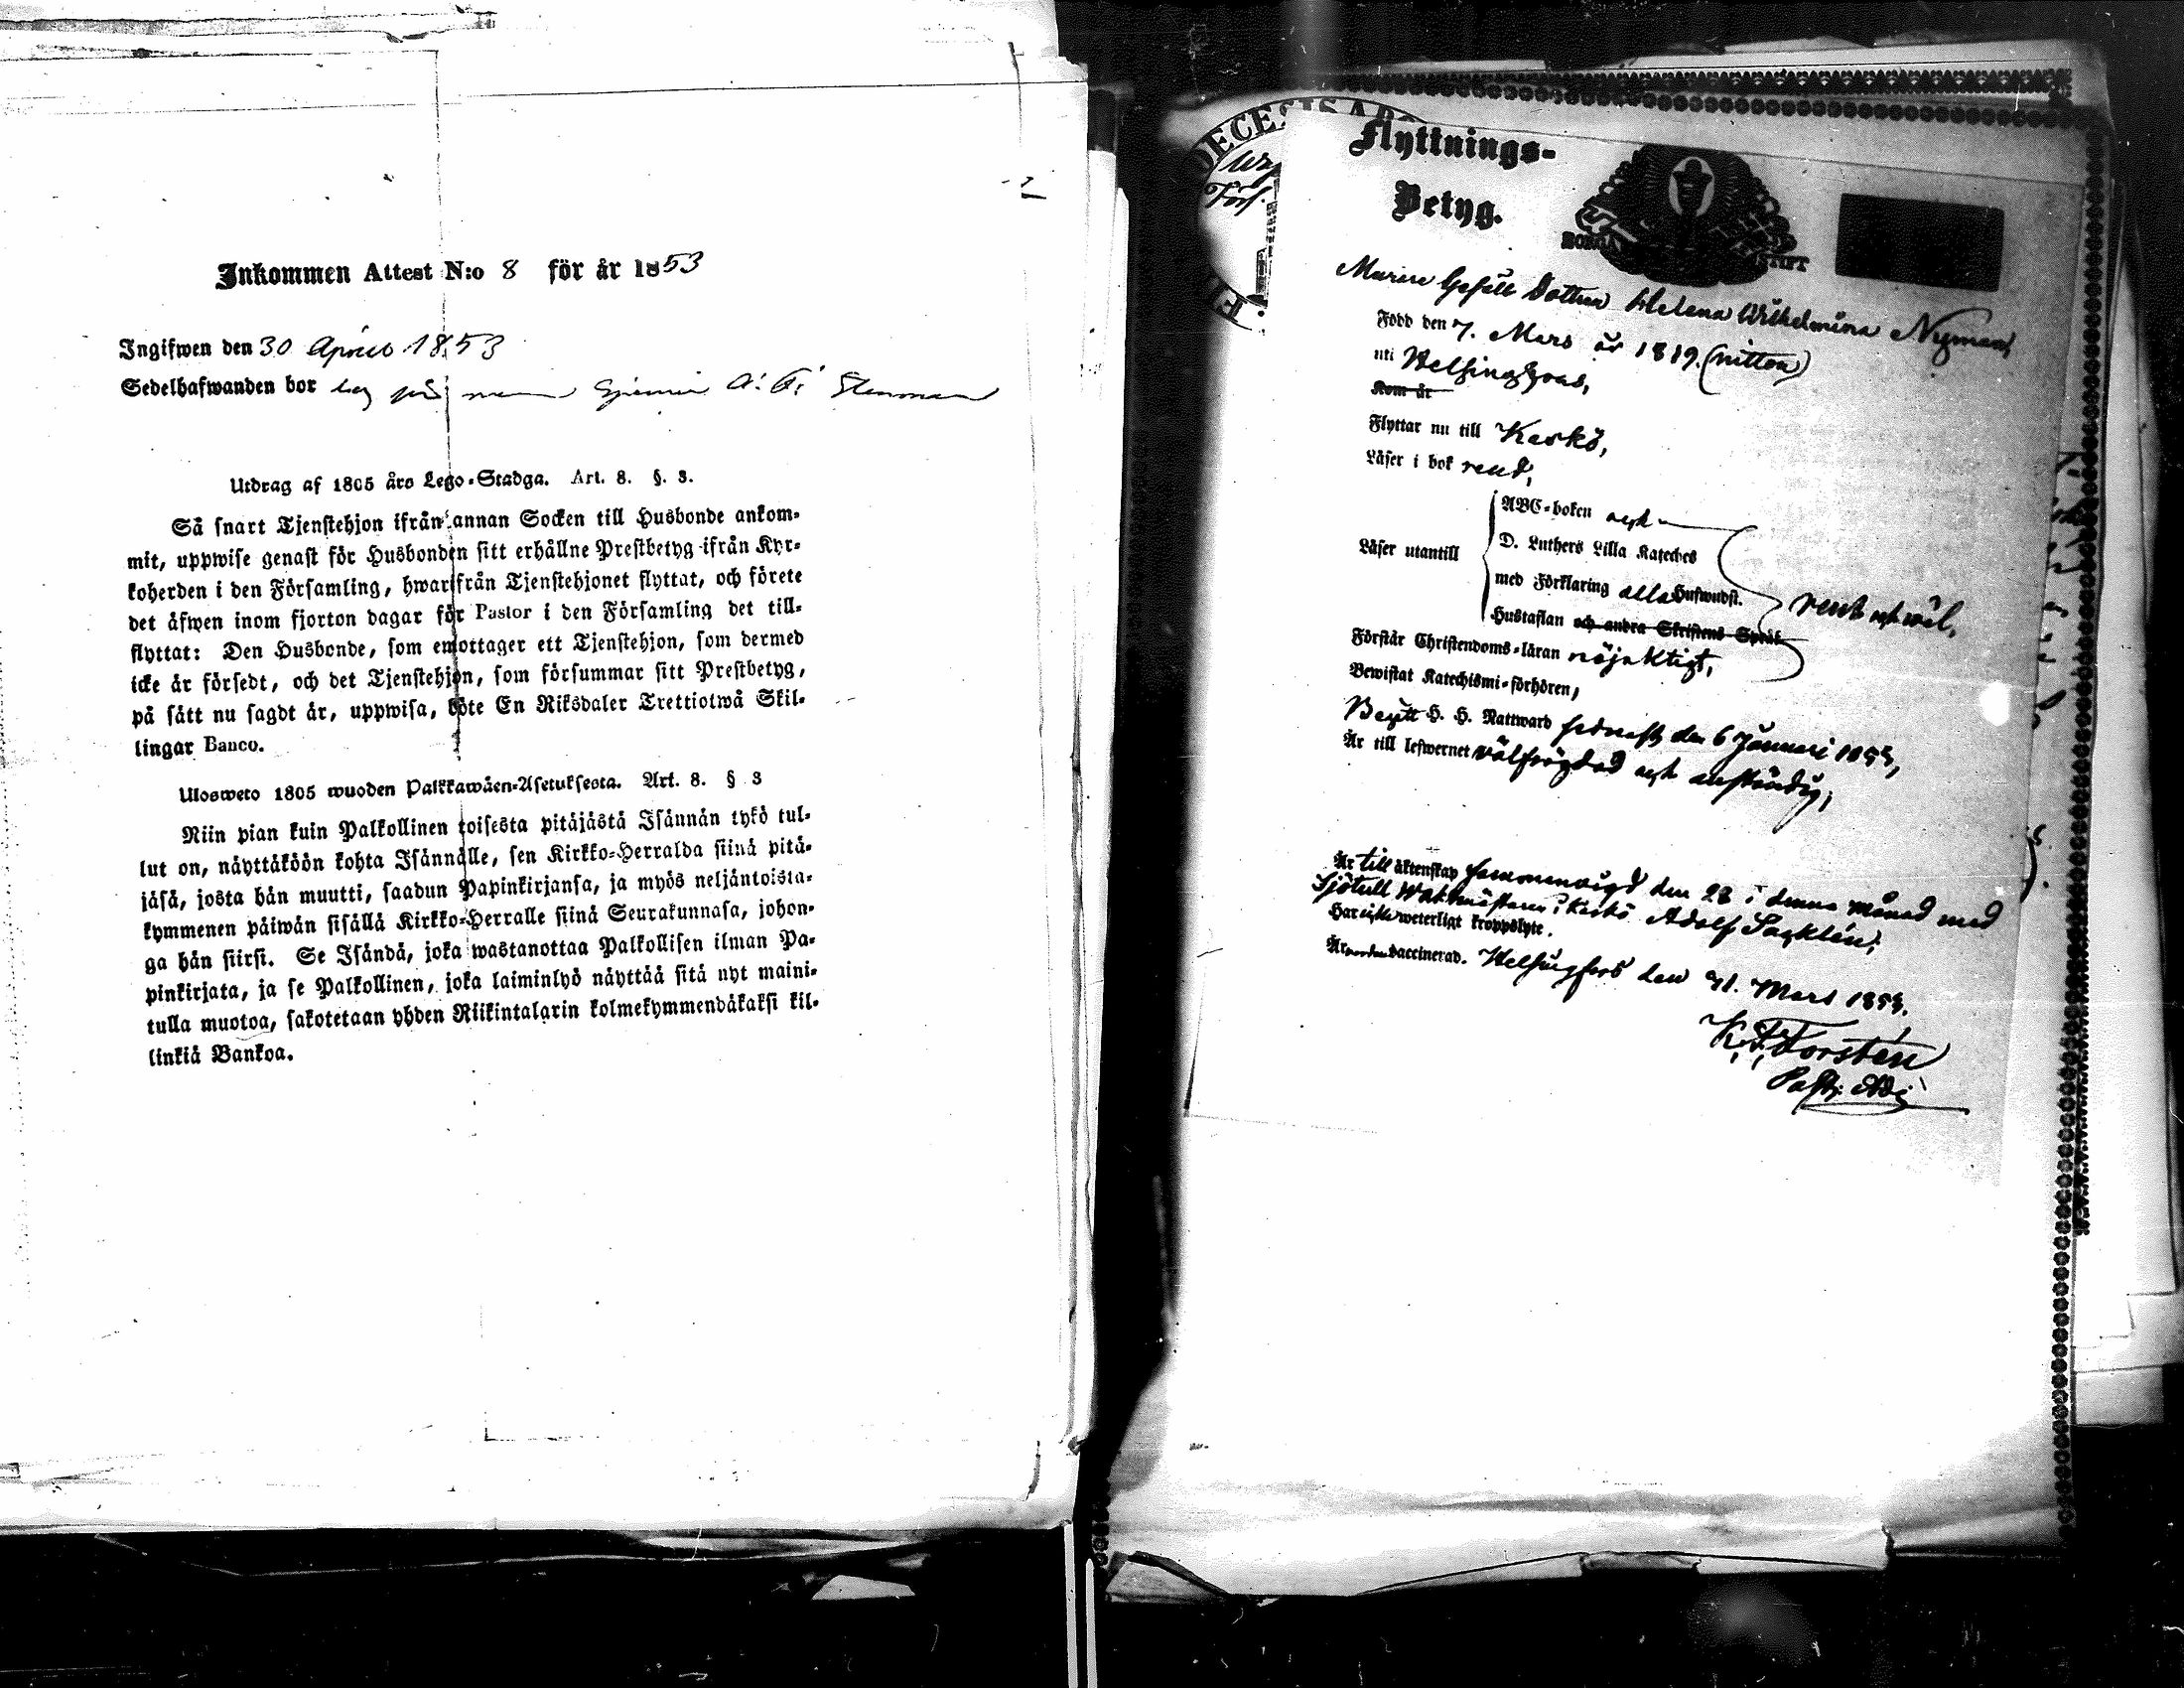 Inkommen Attest N:o 8 för år 1853
Ingifwen den 30 April 1853
Sedelhafwanden bor hos
Utdrag af 1805 års Lego-Stadga. Art. 8. §. 3.
Så snart Tjenstehjon ifrån annan Socken till Husbonde ankom-
mit, uppwise genast för Husbonden sitt erhållne Prestbetyg ifrån Kyr-
koherden i den Församling, hwarifrån Tjenstehjonet flyttat, och förete
det äfwen inom fjorton dagar för Pastor i den Församling det till-
flyttat: Den Husbonde, som emottager ett Tjenstehjon, som dermed
icke är försedt, och det Tjenstehjon, som försummar sitt Prestbetyg,
på sätt nu sagdt är, uppwisa, böte En Riksdaler Trettiotwå Skil-
lingar Banco.
Ulosweto 1805 wuoden Palkkawäen-Asetuksesta. Art. 8. § 3
Niin pian kuin Palkollinen toisesta pitäjästä Isännän tykö tul-
lut on, näyttäköön kohta Isännälle, sen Kirkko-Herralda siinä pitä-
jäsä, josta hän muutti, saadun Papinkirjansa, ja myös neljäntoista-
kymmenen päiwän sisällä Kirkko-Herralle siinä Seurakunnasa, johon-
ga hän siirsi. Se Isändä, joka wastanottaa Palkollisen ilman Pa-
pinkirjata, ja se Palkollinen, joka laiminlyö näyttää sitä nyt maini-
tulla muotoa, sakotetaan yhden Riikintalarin kolmekymmendäkaksi kil-
linkiä Bankoa.
Flyttnings-
Betyg.
BORGÅ STIFT
Murare Gesäll Dottren Helena Wilhelmina Nyman,
Född den 7. Mars år 1819. (nitton)
uti Helsingfors,
Kom år
Flyttar nu till Kaskö,
Läser i bok rent,
Läser utantill
ABC-boken och
D. Luthers Lilla Kateches
med Förklaring alla Hufwudst.
Hustaflan och andra Skriftens Språk
rent och wäl,
Förstår Christendoms-läran nöjaktigt,
Bewistat Katechismi-förhören,
Begått H. H. Nattward sednast den 6 Januari 1853,
Är till lefwernet välfrägdad och anständig;
Är till äktenskap sammanvigd den 28 i denna Månad med
Sjötull Waktmästaren i Kaskö Adolf
Har icke weterligt kroppslyte.
Är vaccinerad. Helsingfors den 31. Mars 1853.
K. F. Forstén
Past. Adj.